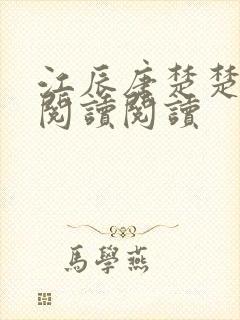 江辰唐楚楚
閱讀閱讀
馬學燕